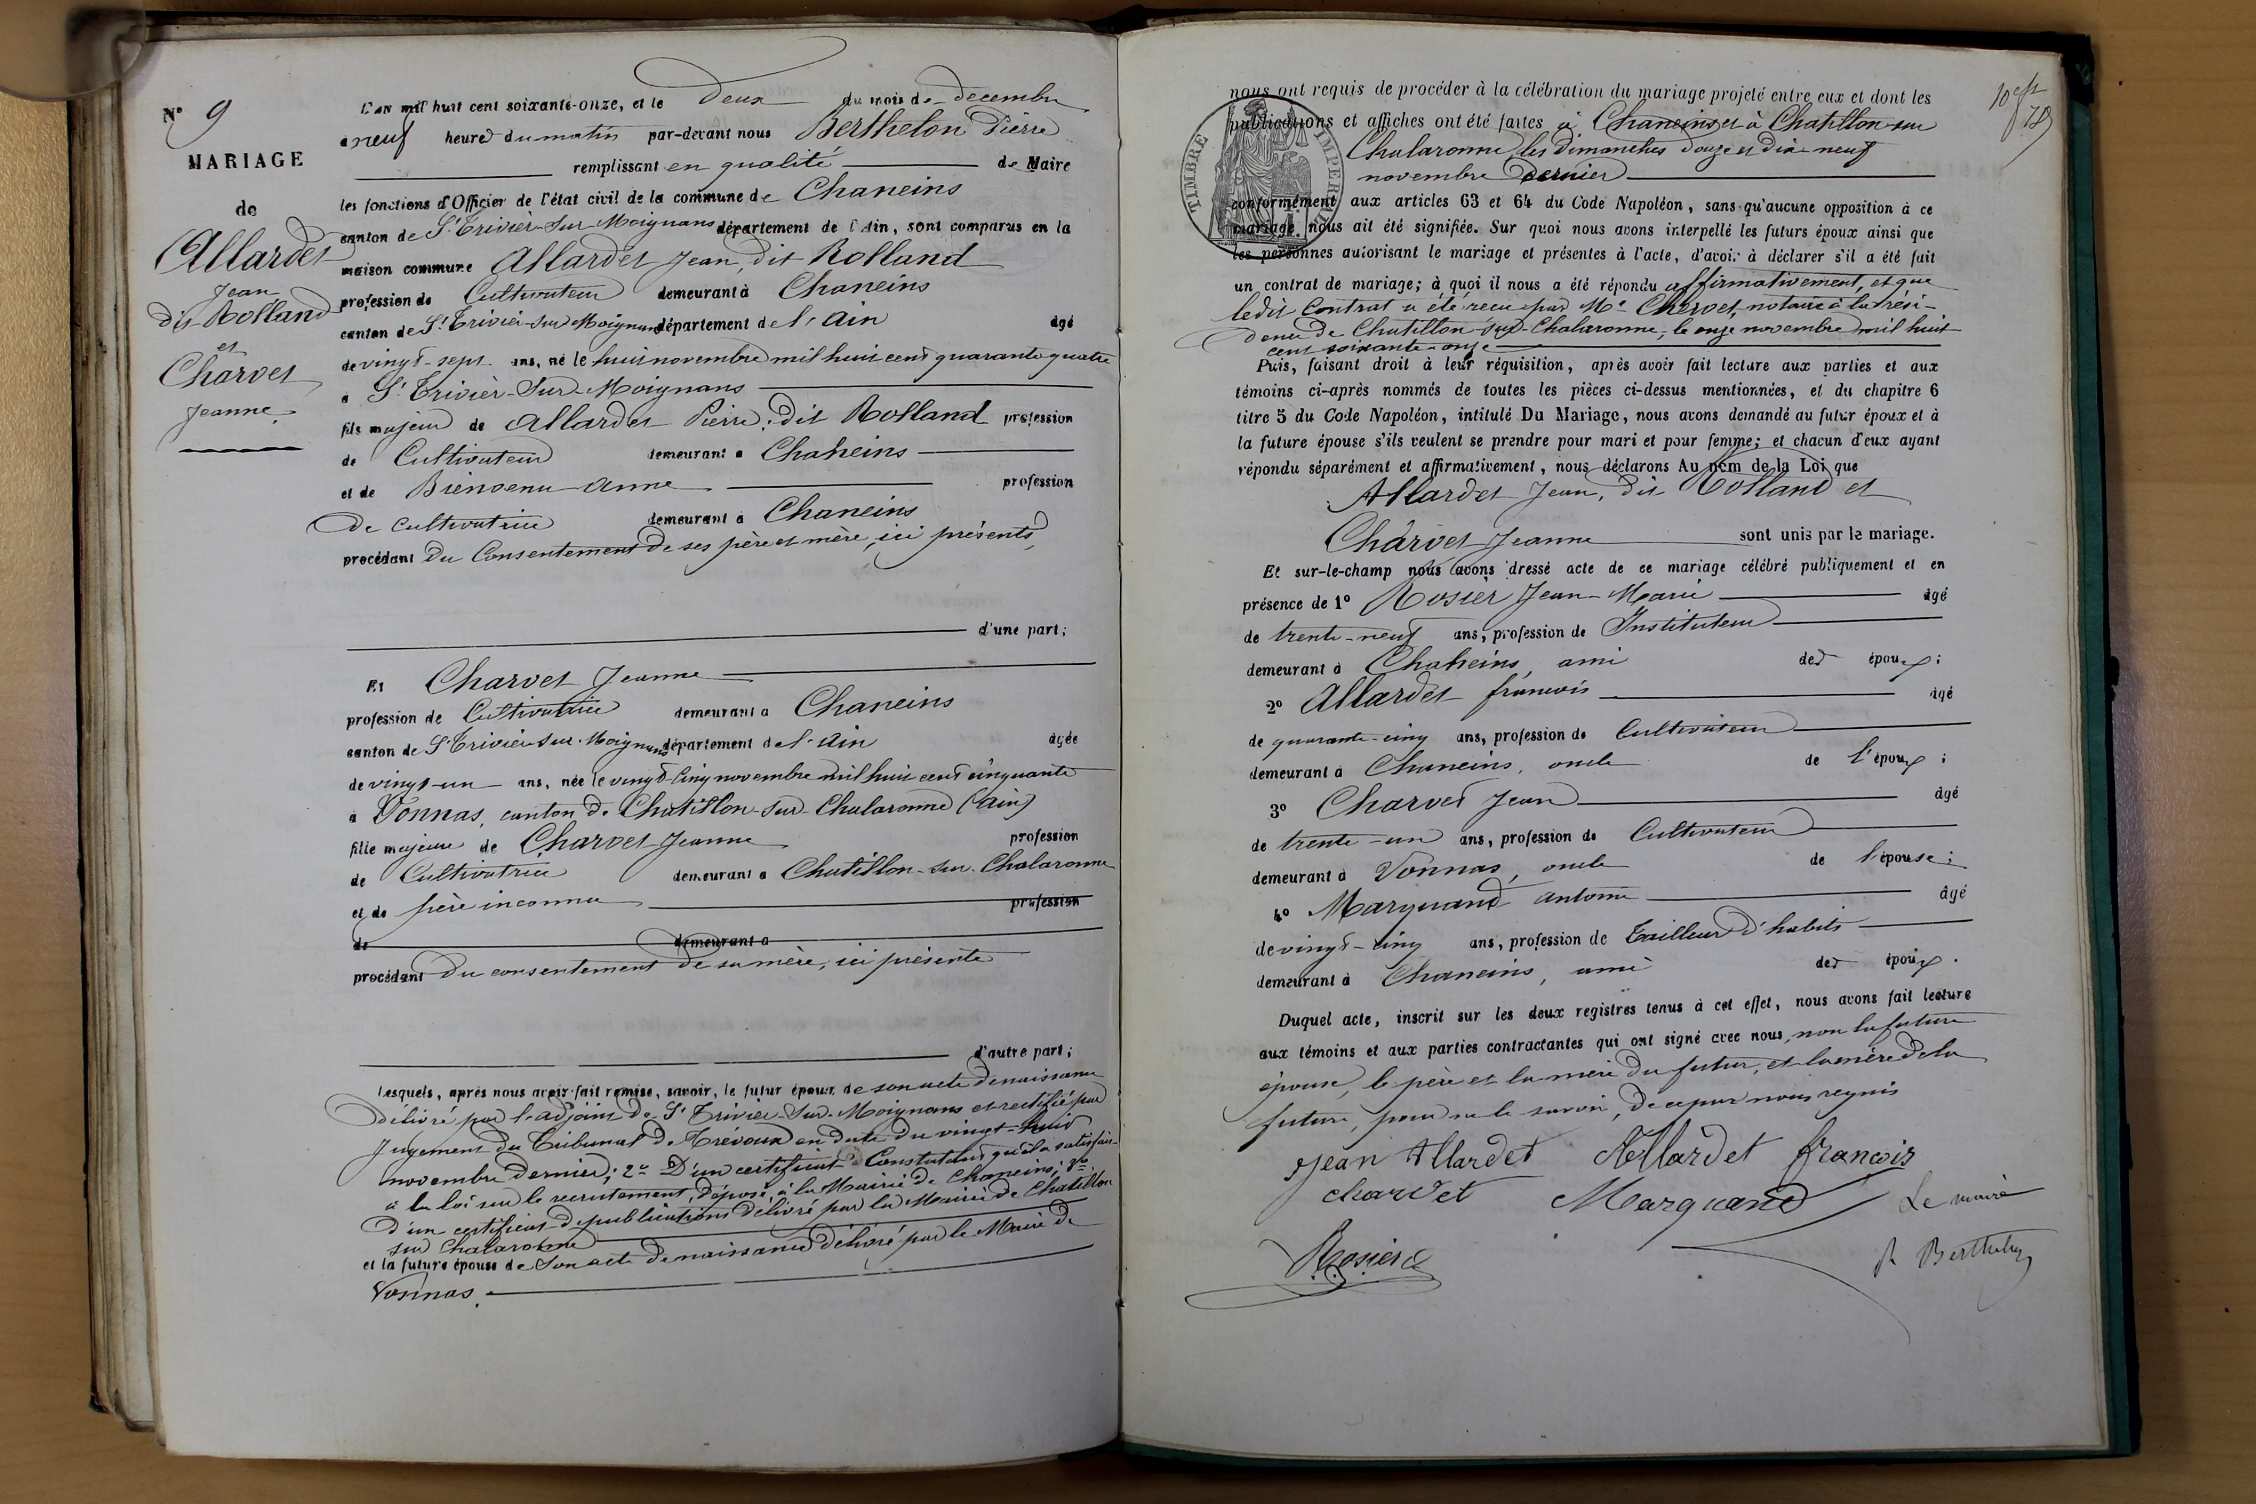 N° 9
MARIAGE
de
Allardet
Jean
dit Rolland
et
Charvet
Jeanne.
L'an mil huit cent soixante-onze, et le deux du mois de decembre
a neuf heures du matin par-devant nous Berthelon Pierre
remplissant en qualité de Maire
les fonctions d'Officier de l'état civil de la commune de Chaneins
canton de St Trivier-sur-Moignans département de l'Ain, sont comparus en la
maison commune Allardet Jean, dit Rolland
profession de Cultivateur demeurant à Chaneins
canton de St Trivier-sur-Moignans département de l'Ain âgé
de vingt-sept ans, né le huit novembre mil huit cent quarante quatre
a St Trivier-sur-Moignans
fils majeur de Allardet Pierre, dit Rolland profession
de Cultivateur demeurant a Chaneins
et de Bienvenu Anne profession
de cultivatrice demeurant à Chaneins
procédant du Consentement de ses père et mère, ici présents,
d'une part;
Et Charvet Jeanne
profession de Cultivatrice demeurant a Chaneins
canton de St Trivier-sur-Moignans département de l'Ain âgée
de vingt-un ans, née le vingt-cinq novembre mil huit cent cinquante
a Vonnas, canton de Chatillon-sur-Chalaronne (Ain)
fille majeure de Charvet Jeanne profession
de Cultivatrice demeurant a Chatillon-sur-Chalaronne
et de père inconnu profession
de demeurant a
procédant du consentement de sa mère, ici présente
d'autre part;
Lesquels, après nous avoir fait remise, savoir, le futur époux de son acte de naissance
délivré par l'adjoint de St Trivier-sur-Moignans et rectifié par
Jugement du Tribunal de Trévoux en date du vingt-huit
novembre dernier; 2° D'un certificat Constatant qu'il a satisfait
à la loi sur le recrutement, déposé à la Mairie de Chaneins; 3°
D'un certificat de publications délivré par la Mairie de Chatillon
sur Chalaronne
et la future épouse de son acte de naissance délivré par le Maire de
Vonnas.
nous ont requis de procéder à la célébration du mariage projeté entre eux et dont les
publications et affiches ont été faites à Chaneins et à Chatillon-sur
Chalaronne, les dimanches douze et dix-neuf
novembre dernier
TIMBRE IMPERIAL
conformément aux articles 63 et 64 du Code Napoléon, sans qu'aucune opposition à ce
mariage nous ait été signifiée. Sur quoi nous avons interpellé les futurs époux ainsi que
les personnes autorisant le mariage et présentes à l'acte, d'avoir à déclarer s'il a été fait
un contrat de mariage; à quoi il nous a été répondu affirmativement, et que
ledit Contrat a été reçu par Me Chervet, notaire à la rési-
dence de Chatillon-sur-Chalaronne, le onze novembre mil huit
cent soixante-onze
Puis, faisant droit à leur réquisition, après avoir fait lecture aux parties et aux
témoins ci-après nommés de toutes les pièces ci-dessus mentionnées, et du chapitre 6
titre 5 du Code Napoléon, intitulé Du Mariage, nous avons demandé au futur époux et à
la future épouse s'ils veulent se prendre pour mari et pour femme; et chacun d'eux ayant
répondu séparément et affirmativement, nous déclarons Au nom de la Loi que
Allardet Jean, dit Rolland et
Charvet Jeanne sont unis par le mariage.
Et sur-le-champ nous avons dressé acte de ce mariage célébré publiquement et en
présence de 1° Rosier Jean-Marie âgé
de trente-neuf ans, profession de Instituteur
demeurant à Chaneins, ami des époux;
2° Allardet françois âgé
de quarante-cinq ans, profession de Cultivateur
demeurant à Chaneins, oncle de l'époux;
3° Charvet Jean âgé
de trente-un ans, profession de Cultivateur
demeurant à Vonnas, oncle de l'épouse;
4° Marquand antoine âgé
de vingt-cinq ans, profession de Tailleur d'habits
demeurant à Chaneins, ami des époux.
Duquel acte, inscrit sur les deux registres tenus à cet effet, nous avons fait lecture
aux témoins et aux parties contractantes qui ont signé avec nous, non la future
épouse, le père et la mère du futur, et la mère de la
future, pour ne le savoir, de ce par nous requis
Jean Allardet Allardet françois
charvet Marquand Le maire
Rosier P Berthelon